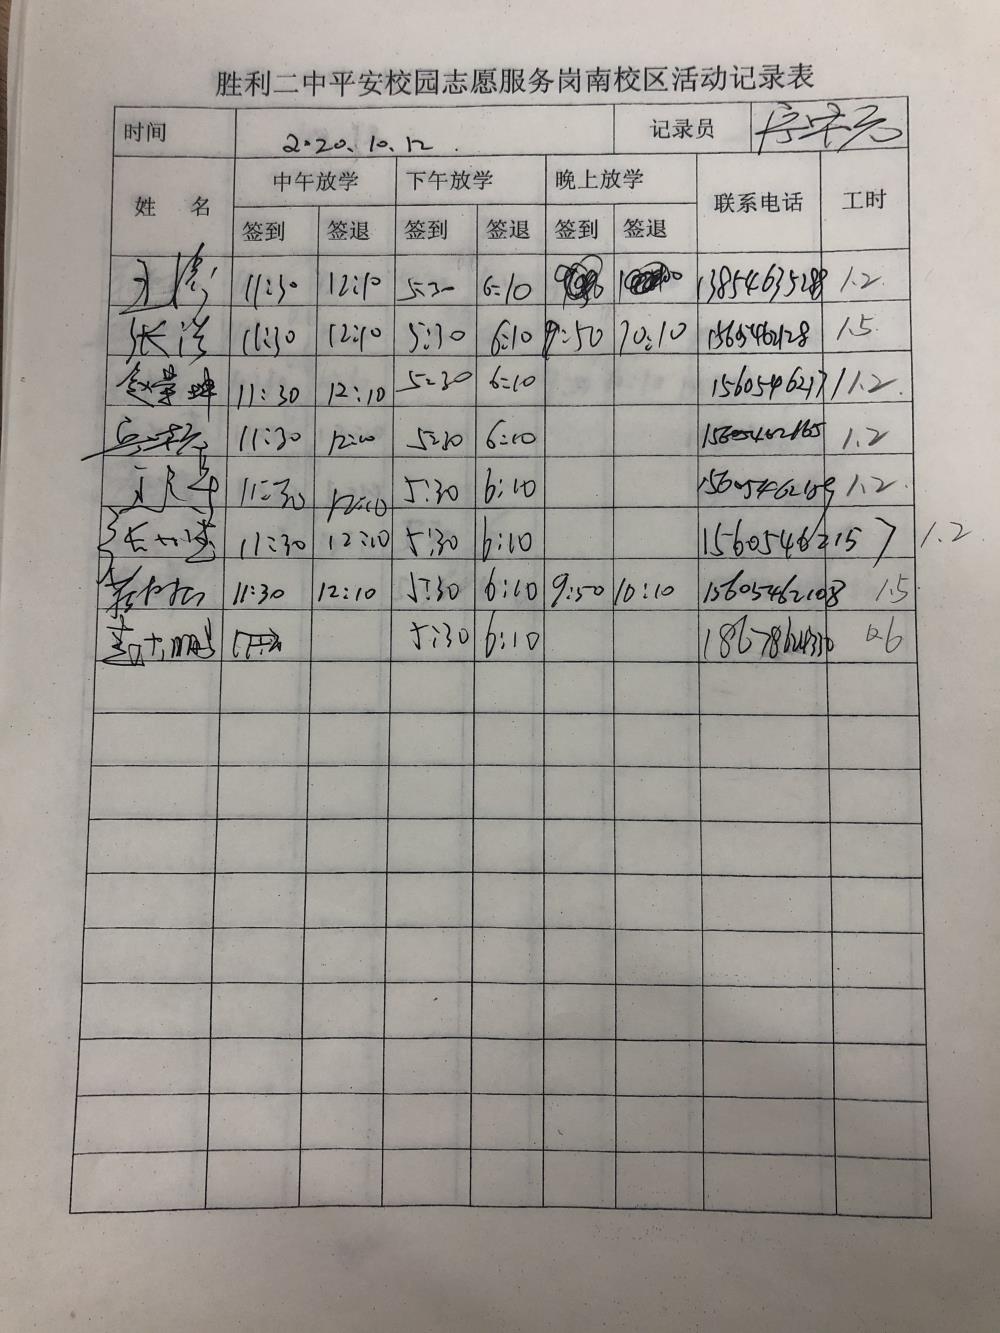 胜利二中平安校园志愿服务岗南校区活动记录表
时间 2020.10.12. 记录员
姓 名 中午放学 下午放学 晚上放学 联系电话 工时
签到 签退 签到 签退 签到 签退
王涛 11:30 12:10 5:30 6:10 13854635288 1.2
张浩 11:30 12:10 5:30 6:10 9:50 10:10 1.5
赵景坤 11:30 12:10 5:30 6:10 1.2
11:30 12:10 5:30 6:10 15605462165 1.2
11:30 12:10 5:30 6:10 1.2
11:30 12:10 5:30 6:10 15605462157 1.2
11:30 12:10 5:30 6:10 9:50 10:10 15605462108 1.5
5:30 6:10 0.6